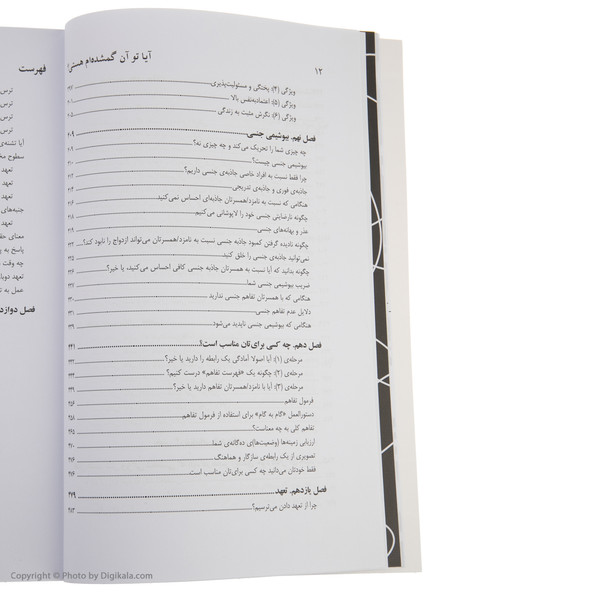 ۱۲ آیا تو آن گمشده‌ام هستی؟
ویژگی (۴): پختگی و مسئولیت‌پذیری
ویژگی (۵): اعتمادبه‌نفس بالا
ویژگی (۶): نگرش مثبت به زندگی
فصل نهم. بیوشیمی جنسی
چه چیزی شما را تحریک می‌کند و چه چیزی نه؟
بیوشیمی جنسی چیست؟
چرا فقط نسبت به افراد خاصی جاذبه‌ی جنسی داریم؟
جاذبه‌ی فوری و جاذبه‌ی تدریجی
هنگامی که نسبت به نامزد/همسرتان جاذبه‌ای احساس نمی‌کنید
چگونه نارضایتی جنسی خود را لاپوشانی می‌کنیم
عذر و بهانه‌های جنسی
چگونه نادیده گرفتن کمبود جاذبه جنسی نسبت به نامزد/همسرتان می‌تواند ازدواج را نابود کند؟
نمی‌توانید جاذبه‌ی جنسی را خلق کنید
چگونه بدانید که آیا نسبت به همسرتان جاذبه جنسی کافی احساس می‌کنید، یا خیر؟
ضریب بیوشیمی جنسی شما
هنگامی که با همسرتان تفاهم جنسی ندارید
دلایل عدم تفاهم جنسی
هنگامی که بیوشیمی جنسی ناپدید می‌شود
فصل دهم. چه کسی برای‌تان مناسب است؟
مرحله‌ی (۱) آیا اصولا آمادگی یک رابطه را دارید یا خیر؟
مرحله‌ی (۲) چگونه یک «فهرست تفاهم» درست کنیم؟
مرحله‌ی (۳) آیا با نامزد/همسرتان تفاهم دارید یا خیر؟
فرمول تفاهم
دستورالعمل «گام به گام» برای استفاده از فرمول تفاهم
تفاهم کلی به چه معناست؟
ارزیابی زمینه‌ها (وضعیت‌ها)ی ده‌گانه‌ی شما
تصویری از یک رابطه‌ی سازگار و هماهنگ
فقط خودتان می‌دانید چه کسی برای‌تان مناسب است
فصل یازدهم. تعهد
چرا از تعهد دادن می‌ترسیم؟
فهرست
ترس
ترس
ترس
ترس
آیا تشنه‌ی
سطوح
تعهد
تعهد
تعهد
جنبه‌های
تعهد
معنای
پاسخ به
چه وقت
تعهد
عمل به
فصل
Copyright © Photo by Digikala.com